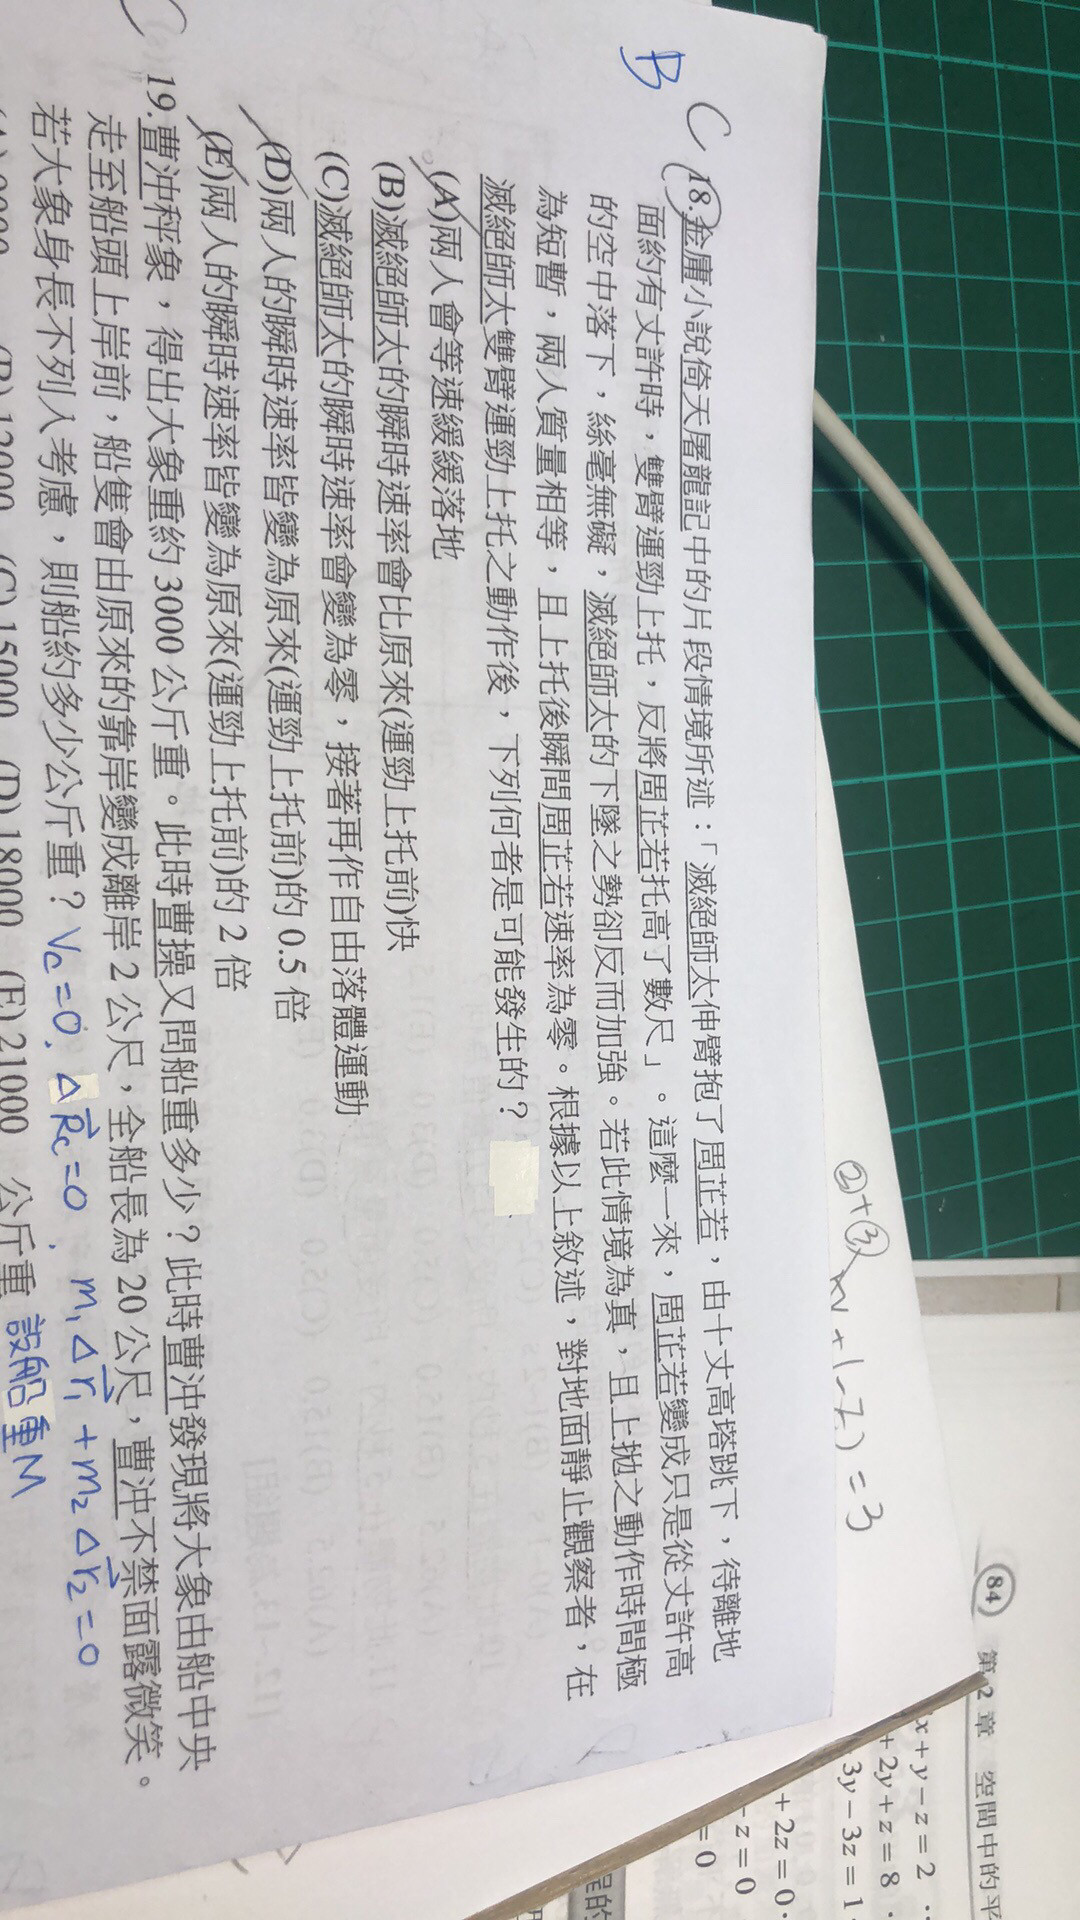 C
B
18.金庸小說倚天屠龍記中的片段情境所述：「滅絕師太伸臂抱了周芷若，由十丈高塔跳下，待離地
面約有丈許時，雙臂運勁上托，反將周芷若托高了數尺」。這麼一來，周芷若變成只是從丈許高
的空中落下，絲毫無礙，滅絕師太的下墜之勢卻反而加強。若此情境為真，且上拋之動作時間極
為短暫，兩人質量相等，且上托後瞬間周芷若速率為零。根據以上敘述，對地面靜止觀察者，在
滅絕師太雙臂運勁上托之動作後，下列何者是可能發生的？
(A)兩人會等速緩緩落地
(B)滅絕師太的瞬時速率會比原來(運勁上托前)快
(C)滅絕師太的瞬時速率會變為零，接著再作自由落體運動
(D)兩人的瞬時速率皆變為原來(運勁上托前)的 0.5 倍
(E)兩人的瞬時速率皆變為原來(運勁上托前)的 2 倍
19.曹沖秤象，得出大象重約 3000 公斤重。此時曹操又問船重多少？此時曹沖發現將大象由船中央
走至船頭上岸前，船隻會由原來的靠岸變成離岸 2 公尺，全船長為 20 公尺，曹沖不禁面露微笑。
若大象身長不列入考慮，則船約多少公斤重？ Vc=0. ΔRc=0. m₁Δr₁+m₂Δr₂=0
(C)15000 (D)18000 (E)21000 公斤重 設船重M
②+③
84 第2章 空間中的平
x+y−z=2
+2y+z=8
3y−3z=1
+2z=0
−z=0
=0